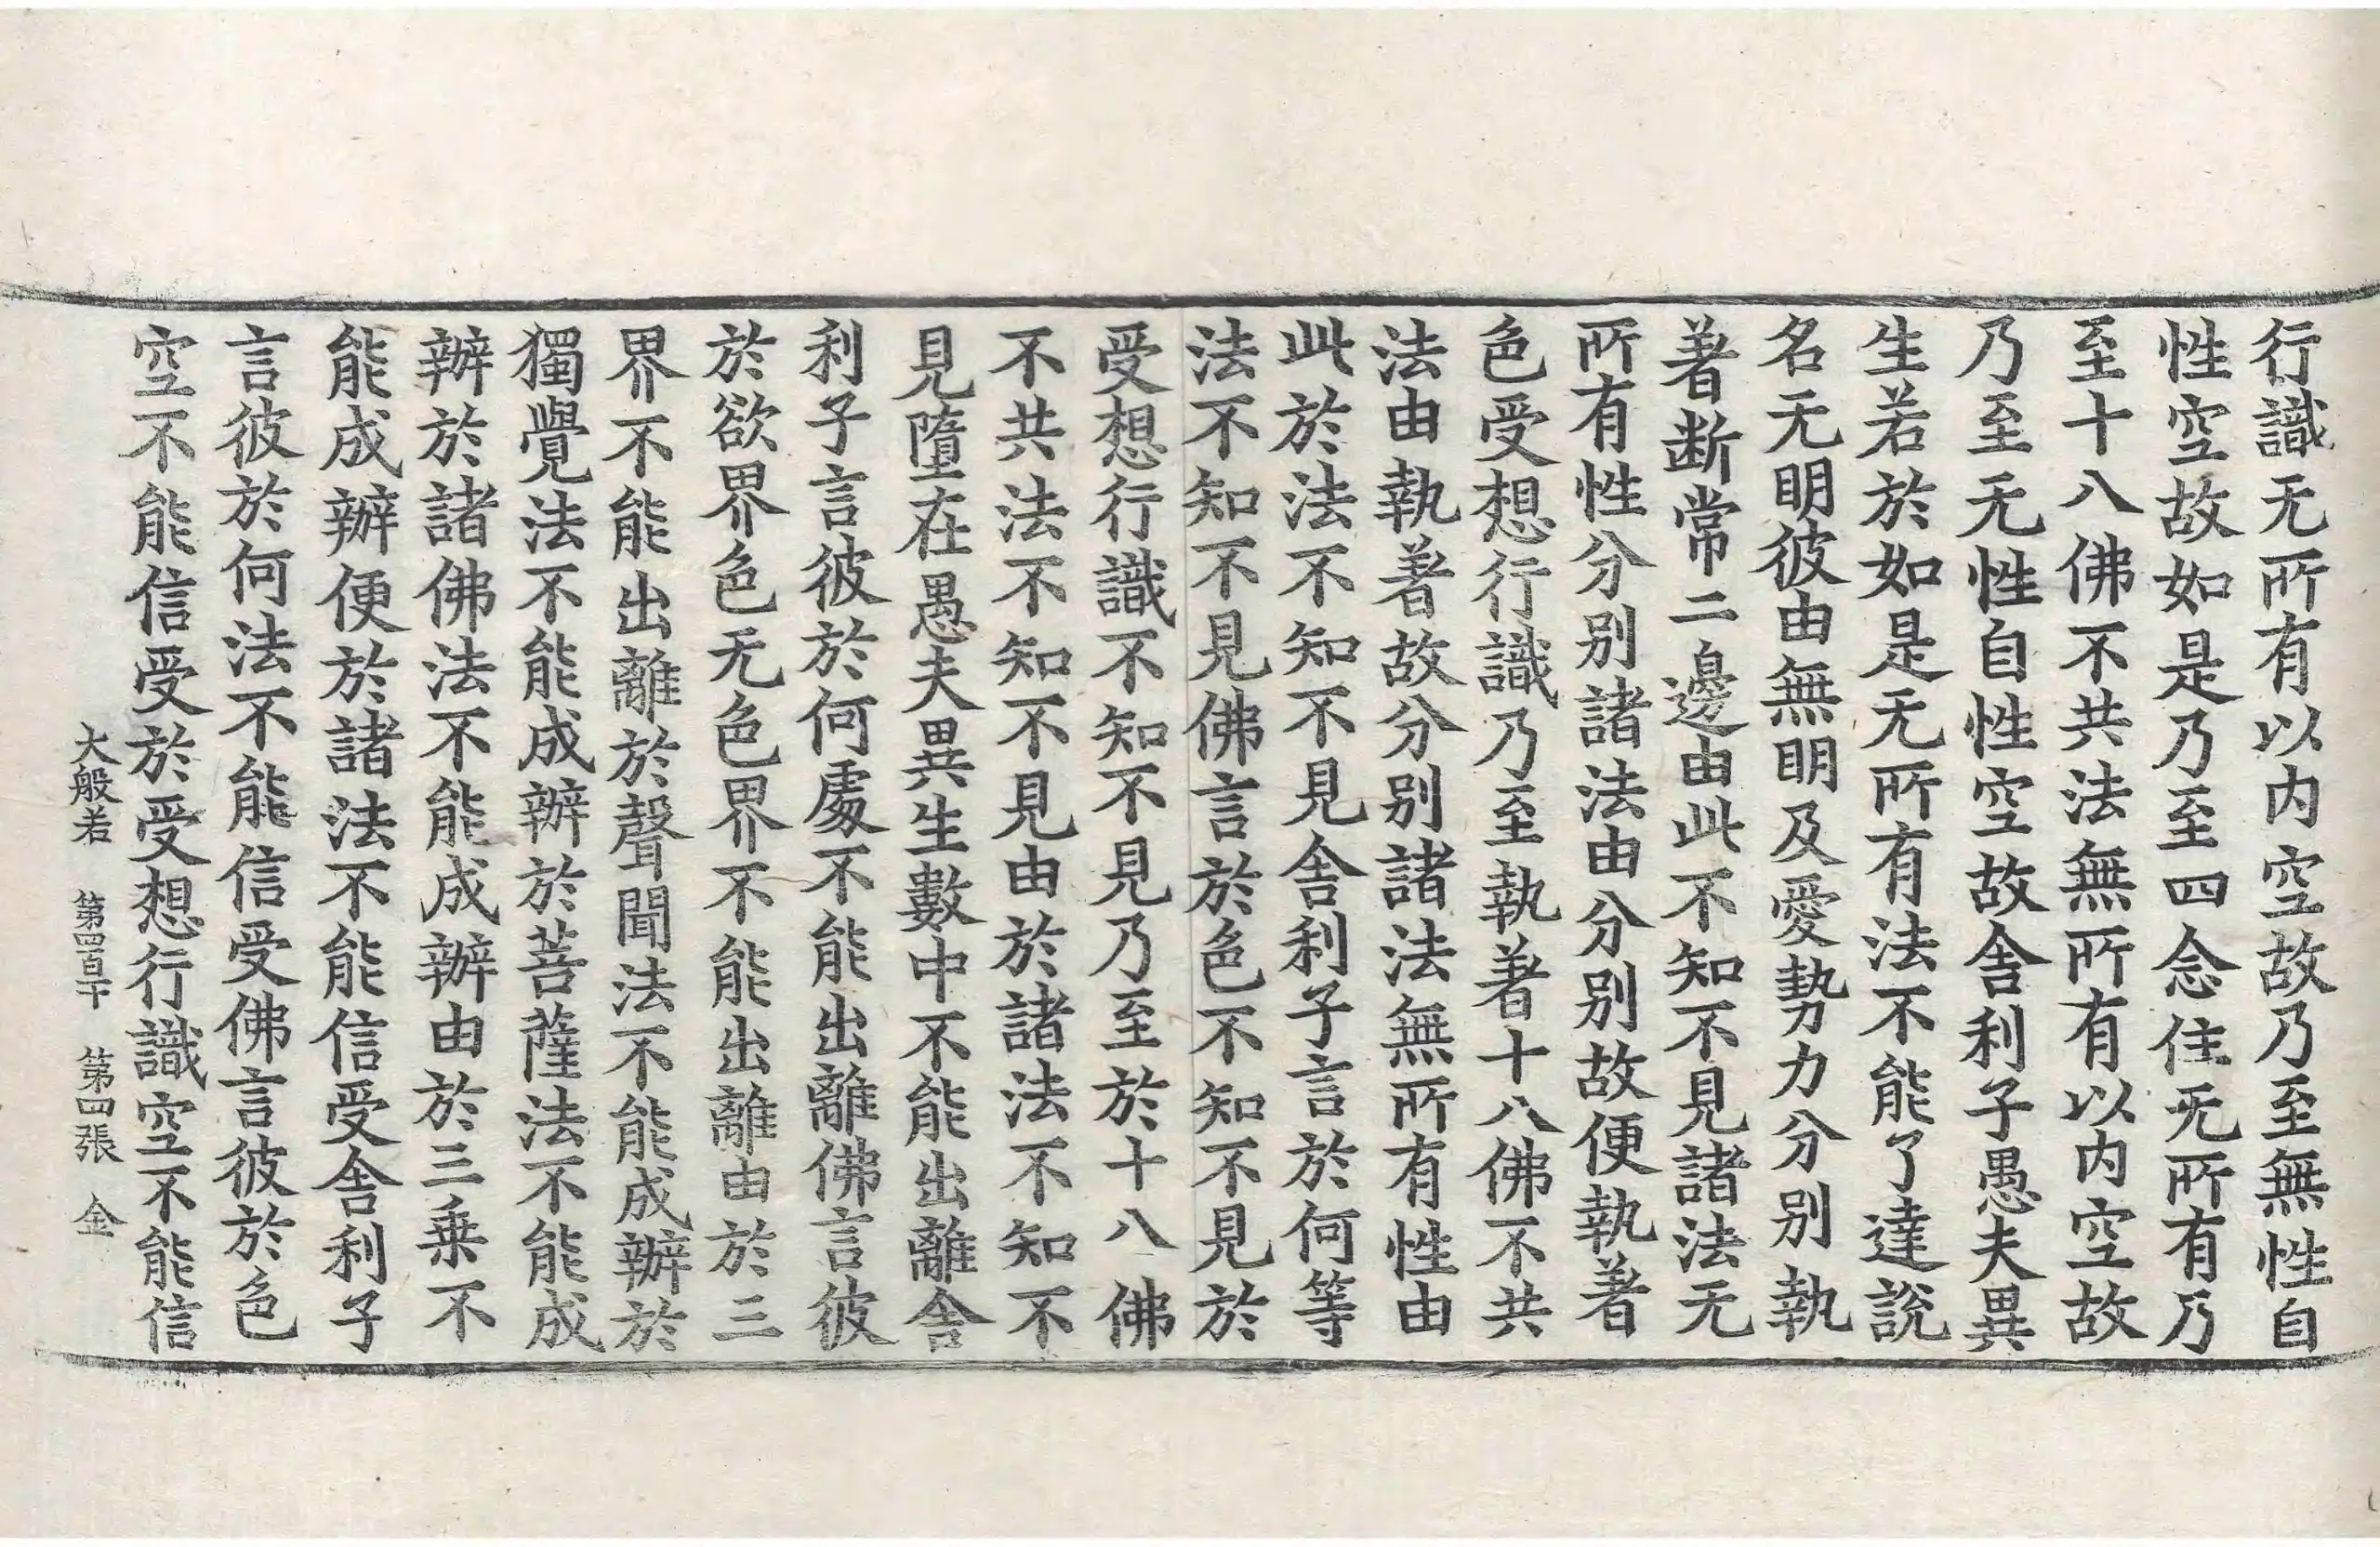 行識无所有以内空故乃至無性自
性空故如是乃至四念住无所有乃
至十八佛不共法無所有以内空故
乃至无性自性空故舍利子愚夫異
生若於如是无所有法不能了達說
名无明彼由無明及愛勢力分別執
著断常二邊由此不知不見諸法无
所有性分別諸法由分別故便執著
色受想行識乃至執著十八佛不共
法由執著故分別諸法無所有性由
此於法不知不見舍利子言於何等
法不知不見佛言於色不知不見於
受想行識不知不見乃至於十八佛
不共法不知不見由於諸法不知不
見墮在愚夫異生數中不能出離舍
利子言彼於何處不能出離佛言彼
於欲界色无色界不能出離由於三
界不能出離於聲聞法不能成辦於
獨覺法不能成辦於菩薩法不能成
辦於諸佛法不能成辦由於三乗不
能成辦便於諸法不能信受舍利子
言彼於何法不能信受佛言彼於色
空不能信受於受想行識空不能信
大般若 第四百十 第四張 金